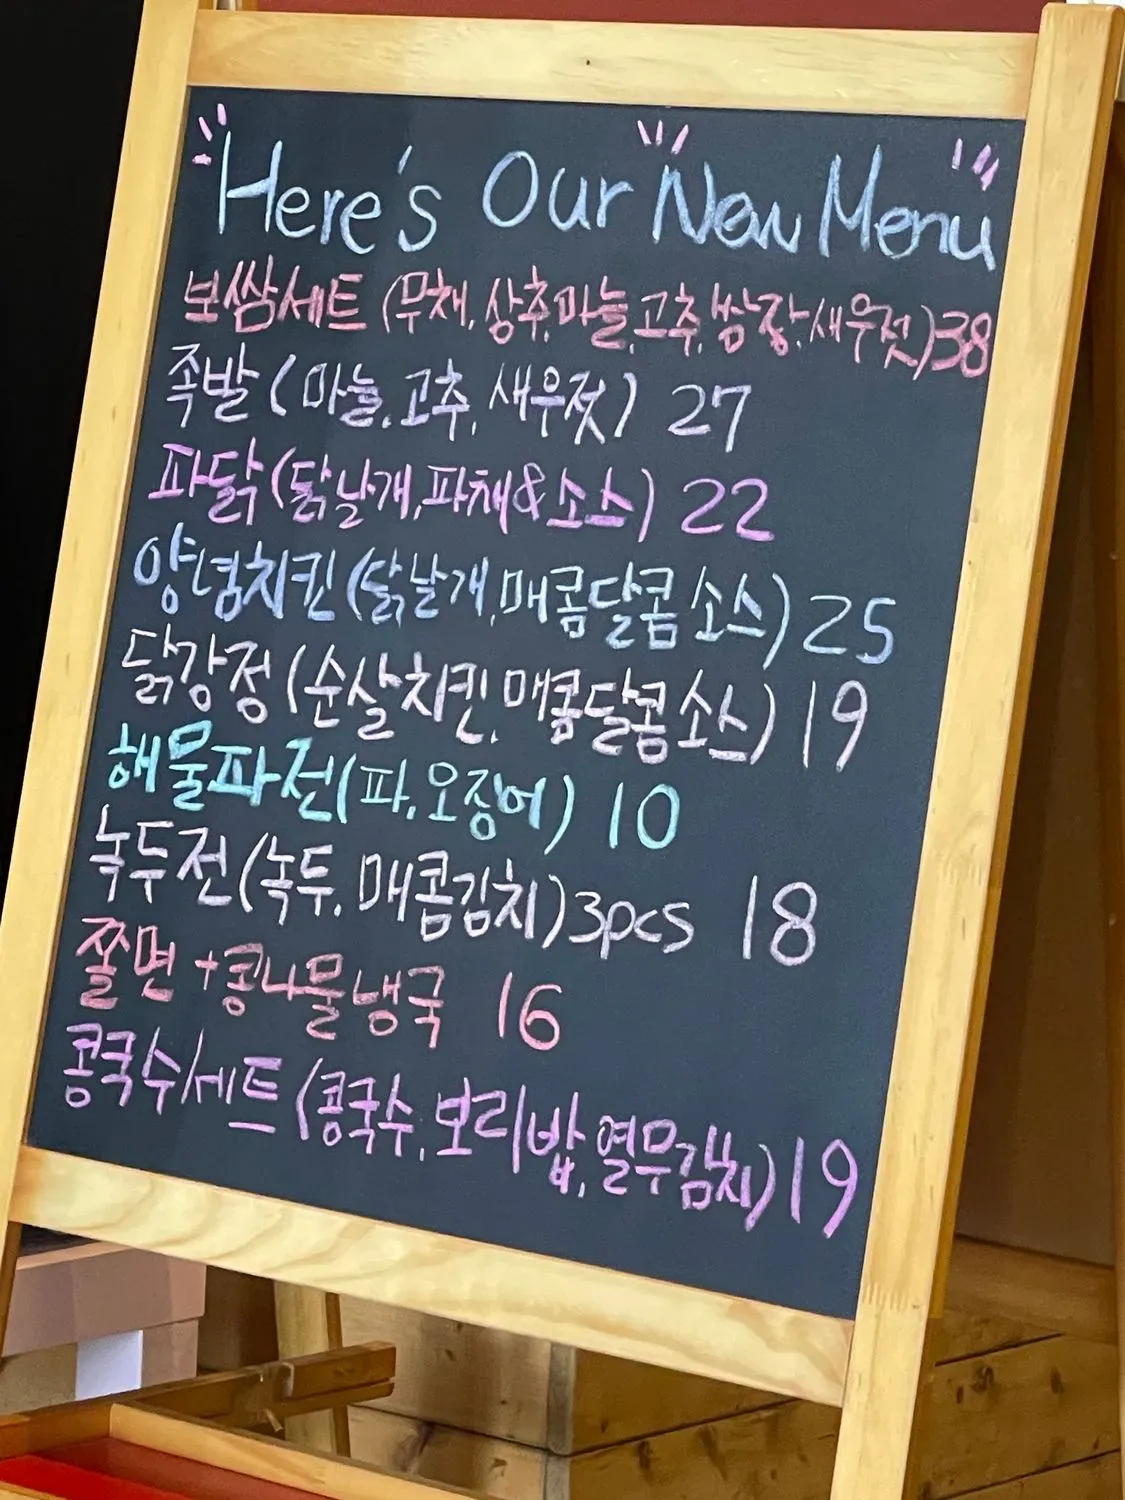 Here's Our New Menu
보쌈세트 (무채, 상추, 마늘, 고추, 쌈장, 새우젓) 38
족발 (마늘, 고추, 새우젓) 27
파닭 (닭날개, 파채&소스) 22
양념치킨 (닭날개, 매콤달콤 소스) 25
닭강정 (순살치킨, 매콤달콤 소스) 19
해물파전 (파, 오징어) 10
녹두전 (녹두, 매콤김치) 3pcs 18
쫄면 + 콩나물냉국 16
콩국수세트 (콩국수, 보리밥, 열무김치) 19